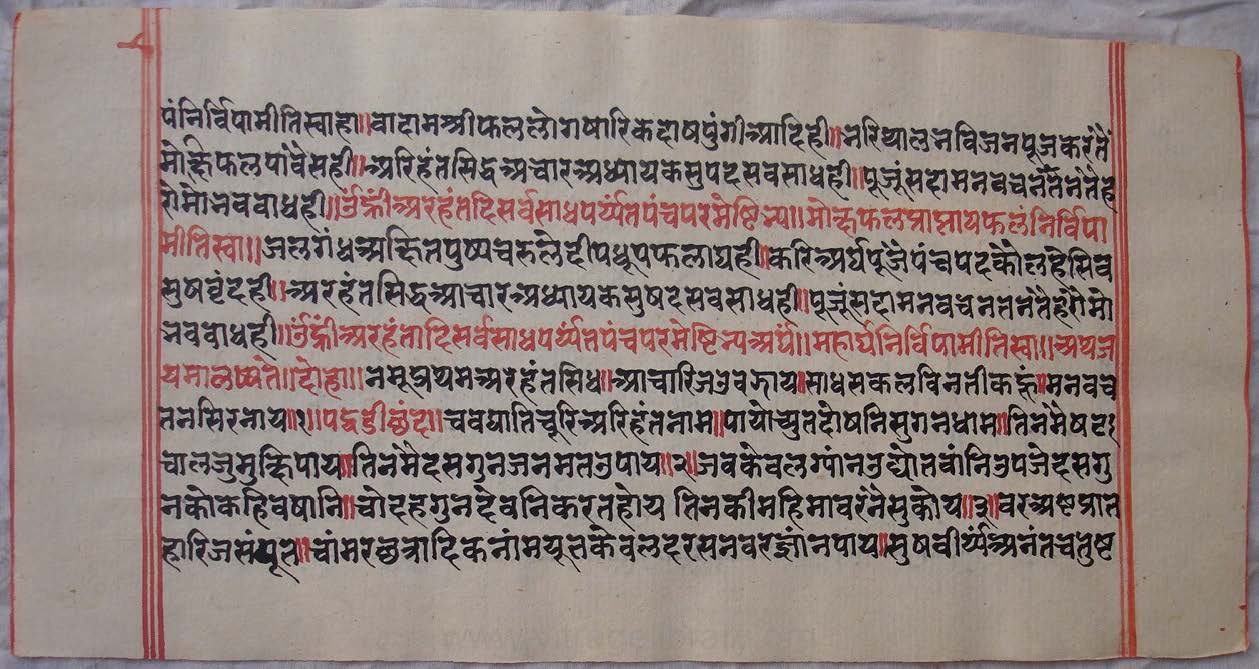 पंनिर्विपामीतिस्वाहा॥वादामश्रीफललोगषारिकदाषपुंगीआदिही॥नरियालनविजनपूजकरतें
मोक्षिफलपांवेसही॥अरिहंतसिद्धअचारअध्यायकसुपदसवसाधही॥पूजूंसदामनवचनतनतेंह
रोमोनववाधही॥ॐह्रीअरहंतदिसर्वसाधपर्य्यतपंचपरमेष्टिभ्या॥मोक्षफलप्राप्तायफलंनिर्विपा
मीतिस्वा॥जलगंधअक्षितपुष्पचरुलैदीपधूपफलाघही॥करिअर्घपूजेंपंचपदकोलहैसिव
सुषवृंदही॥अरहंतसिद्धआचारअध्यायकसुषदसवसाधही॥पूजूंसदामनवचनतनतेंहरोमो
नववाधही॥ॐह्रींअरहंतादिसर्वसाधपर्य्यतपंचपरमेष्टिभ्यअर्घ॥महार्घनिर्विपामीतिस्वा॥अथज
यमालष्यते॥दोहा॥नमूप्रथमअरहंतसिध॥आचारिजउवझाय॥साधसकलविनतीकरूं॥मनवच
तनसिरनाय॥१॥पद्धडीछंद॥चवघातिचूरिअरिहंतनाम॥पायोच्युतदोषनिसुगनधाम॥तिनमैषट
चालजुमुक्षिपाय॥तिनमैदसगुनजनमतउपाय॥२॥जवकेवलग्यांनउद्योतवांनिउपजेदसगु
नकोकहिवषानि॥चोदहगुनदेवनिकरतहोय तिनकीमहिमावरनैसुकोय॥३॥वरअष्टप्रात
हारिजसंयूत॥चांमरछत्रादिकनांमयूतकेवलदरसनवरज्ञांनपाय॥सुषवीर्य्यअनंतचतुष्ट